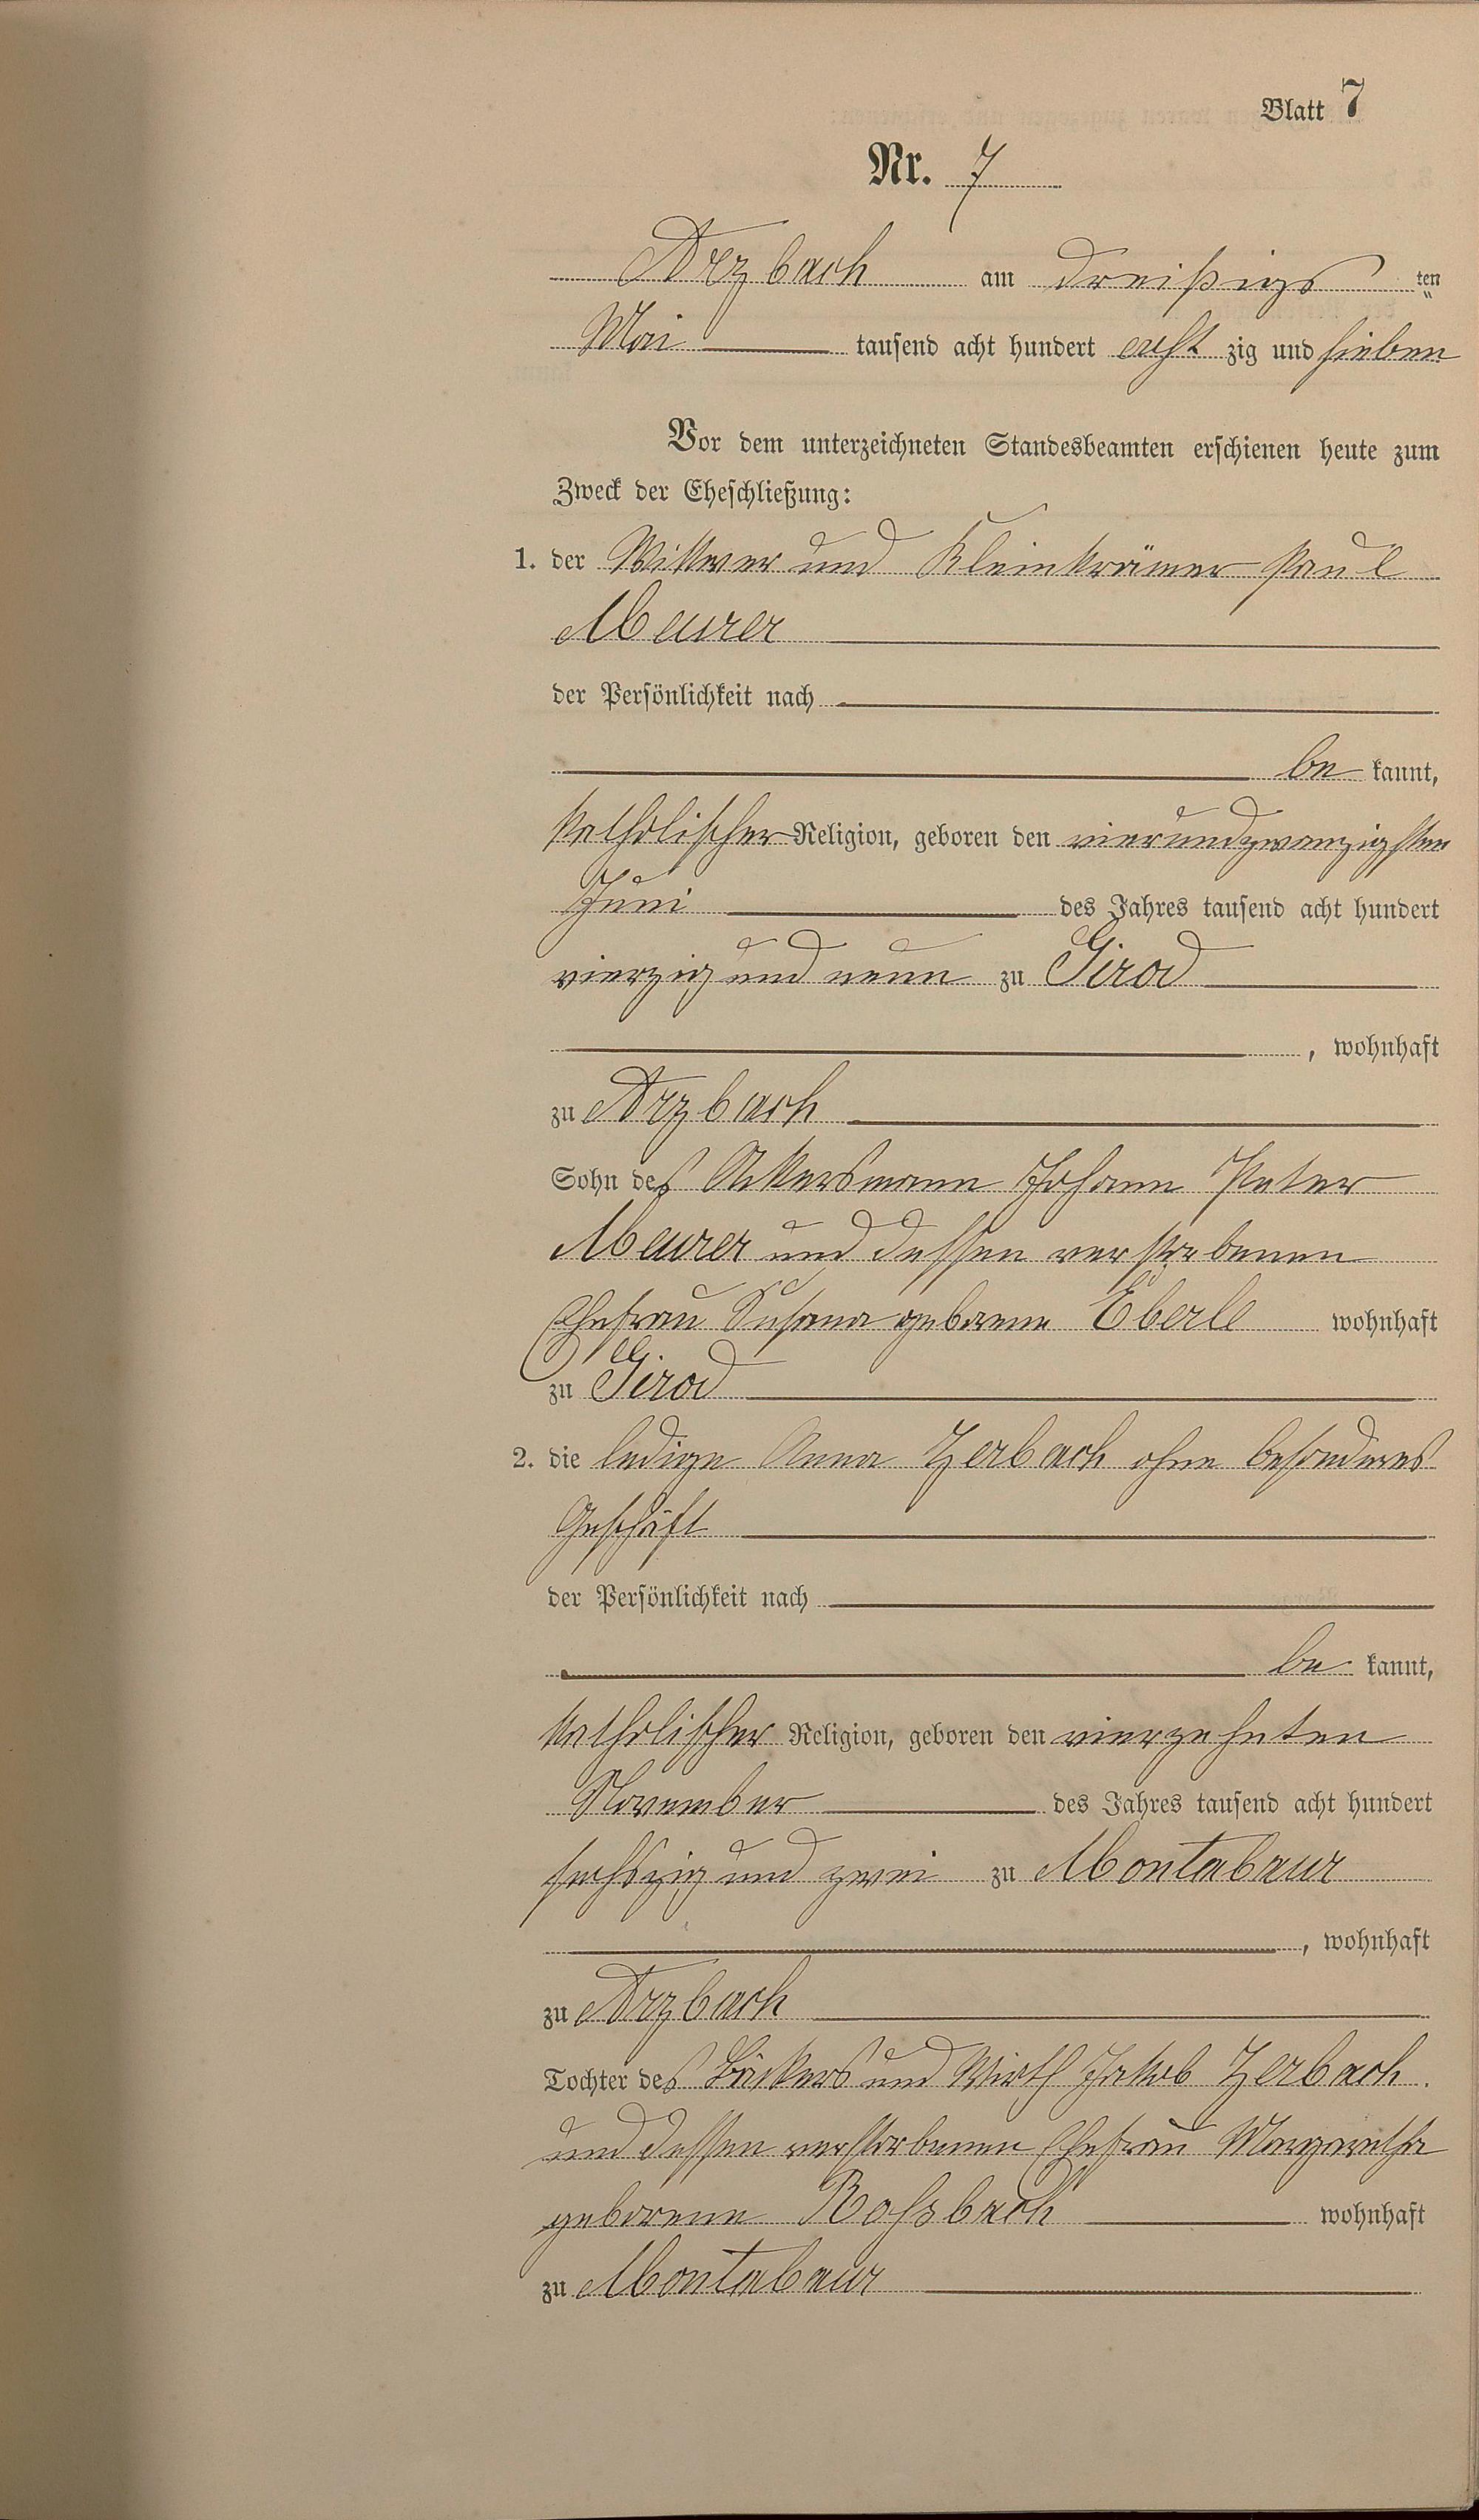 Blatt 7
Nr. 7
Arzbach am dreißigs ten
Mai tausend acht hundert acht zig und sieben
Vor dem unterzeichneten Standesbeamten erschienen heute zum
Zweck der Eheschließung:
1. der Wittwer und Kleinkrämer Paul
Meurer
der Persönlichkeit nach
be kannt,
katholischer Religion, geboren den vierundzwanzigsten
Juni des Jahres tausend acht hundert
vierzig und neun zu Girod
, wohnhaft
zu Arzbach
Sohn des Ackersmann Johann Peter
Meurer und dessen verstorbenen
Ehefrau Susana geborene Eberle wohnhaft
zu Girod
2. die ledige Anna Zerbach ohne besonderes
Geschäft
der Persönlichkeit nach
be kannt,
katholischer Religion, geboren den vierzehnten
November des Jahres tausend acht hundert
sechszig und zwei zu Montabaur
, wohnhaft
zu Arzbach
Tochter des Bäckers und Wirth Jakob Zerbach
und dessen verstorbenen Ehefrau Margaretha
geborene Roßbach wohnhaft
zu Montabaur